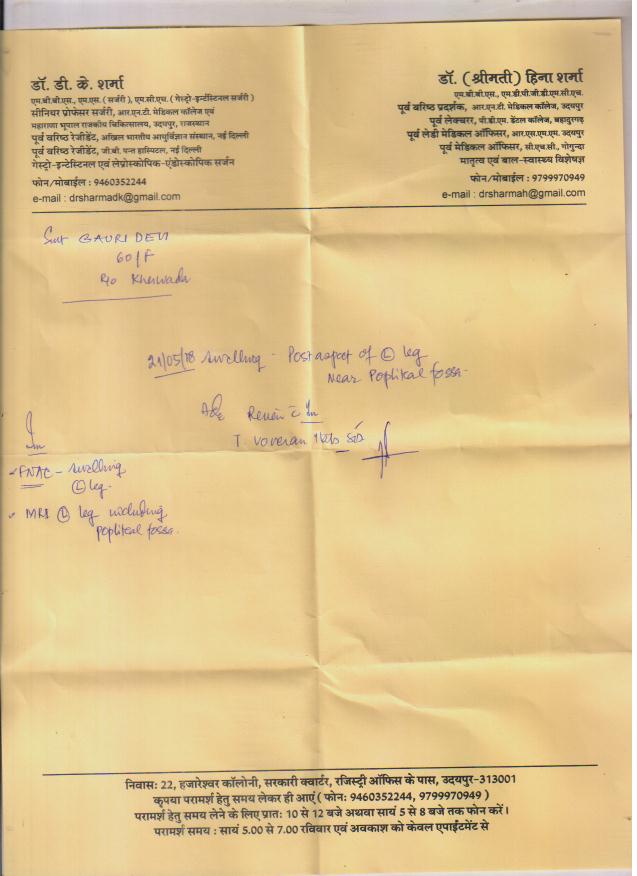 डॉ. डी. के. शर्मा
एम.बी.बी.एस., एम.एस. ( सर्जरी ), एम.सी.एच. ( गेस्ट्रो-इन्टेंस्टिनल सर्जरी )
सीनियर प्रोफेसर सर्जरी, आर.एन.टी. मेडिकल कॉलेज एवं
महाराणा भूपाल राजकीय चिकित्सालय, उदयपुर, राजस्थान
पूर्व वरिष्ठ रेजीडेंट, अखिल भारतीय आयुर्विज्ञान संस्थान, नई दिल्ली
पूर्व वरिष्ठ रेजीडेंट, जी.बी. पन्त हास्पिटल, नई दिल्ली
गेस्ट्रो-इन्टेस्टिनल एवं लेप्रोस्कोपिक-एंडोस्कोपिक सर्जन
फोन/मोबाईल : 9460352244
e-mail : drsharmadk@gmail.com
डॉ. (श्रीमती) हिना शर्मा
एम.बी.बी.एस., एम.डी.पी.जी.डी.एम.सी.एच.
पूर्व वरिष्ठ प्रदर्शक, आर.एन.टी. मेडिकल कॉलेज, उदयपुर
पूर्व लेक्चरर, पी.डी.एम. डेंटल कॉलेज, बहादुरगढ़
पूर्व लेडी मेडिकल ऑफिसर, आर.एस.एम.एम. उदयपुर
पूर्व मेडिकल ऑफिसर, सी.एच.सी., गोगुन्दा
मातृत्व एवं बाल-स्वास्थ्य विशेषज्ञ
फोन/मोबाईल : 9799970949
e-mail : drsharmah@gmail.com
Smt GAURI DEVI
60/F
R/o Kherwada
21/05/18 swelling - Post aspect of (L) leg
Near Popliteal fossa.
Adv Review c̄ Inv
T. Voveran 1 tab SOS
Inv
FNAC - swelling
(L) leg.
MRI (L) leg including
Popliteal fossa.
निवास: 22, हजारेश्वर कॉलोनी, सरकारी क्वार्टर, रजिस्ट्री ऑफिस के पास, उदयपुर-313001
कृपया परामर्श हेतु समय लेकर ही आएं ( फोन: 9460352244, 9799970949 )
परामर्श हेतु समय लेने के लिए प्रातः 10 से 12 बजे अथवा सायं 5 से 8 बजे तक फोन करें।
परामर्श समय : सायं 5.00 से 7.00 रविवार एवं अवकाश को केवल एपाईंटमेंट से